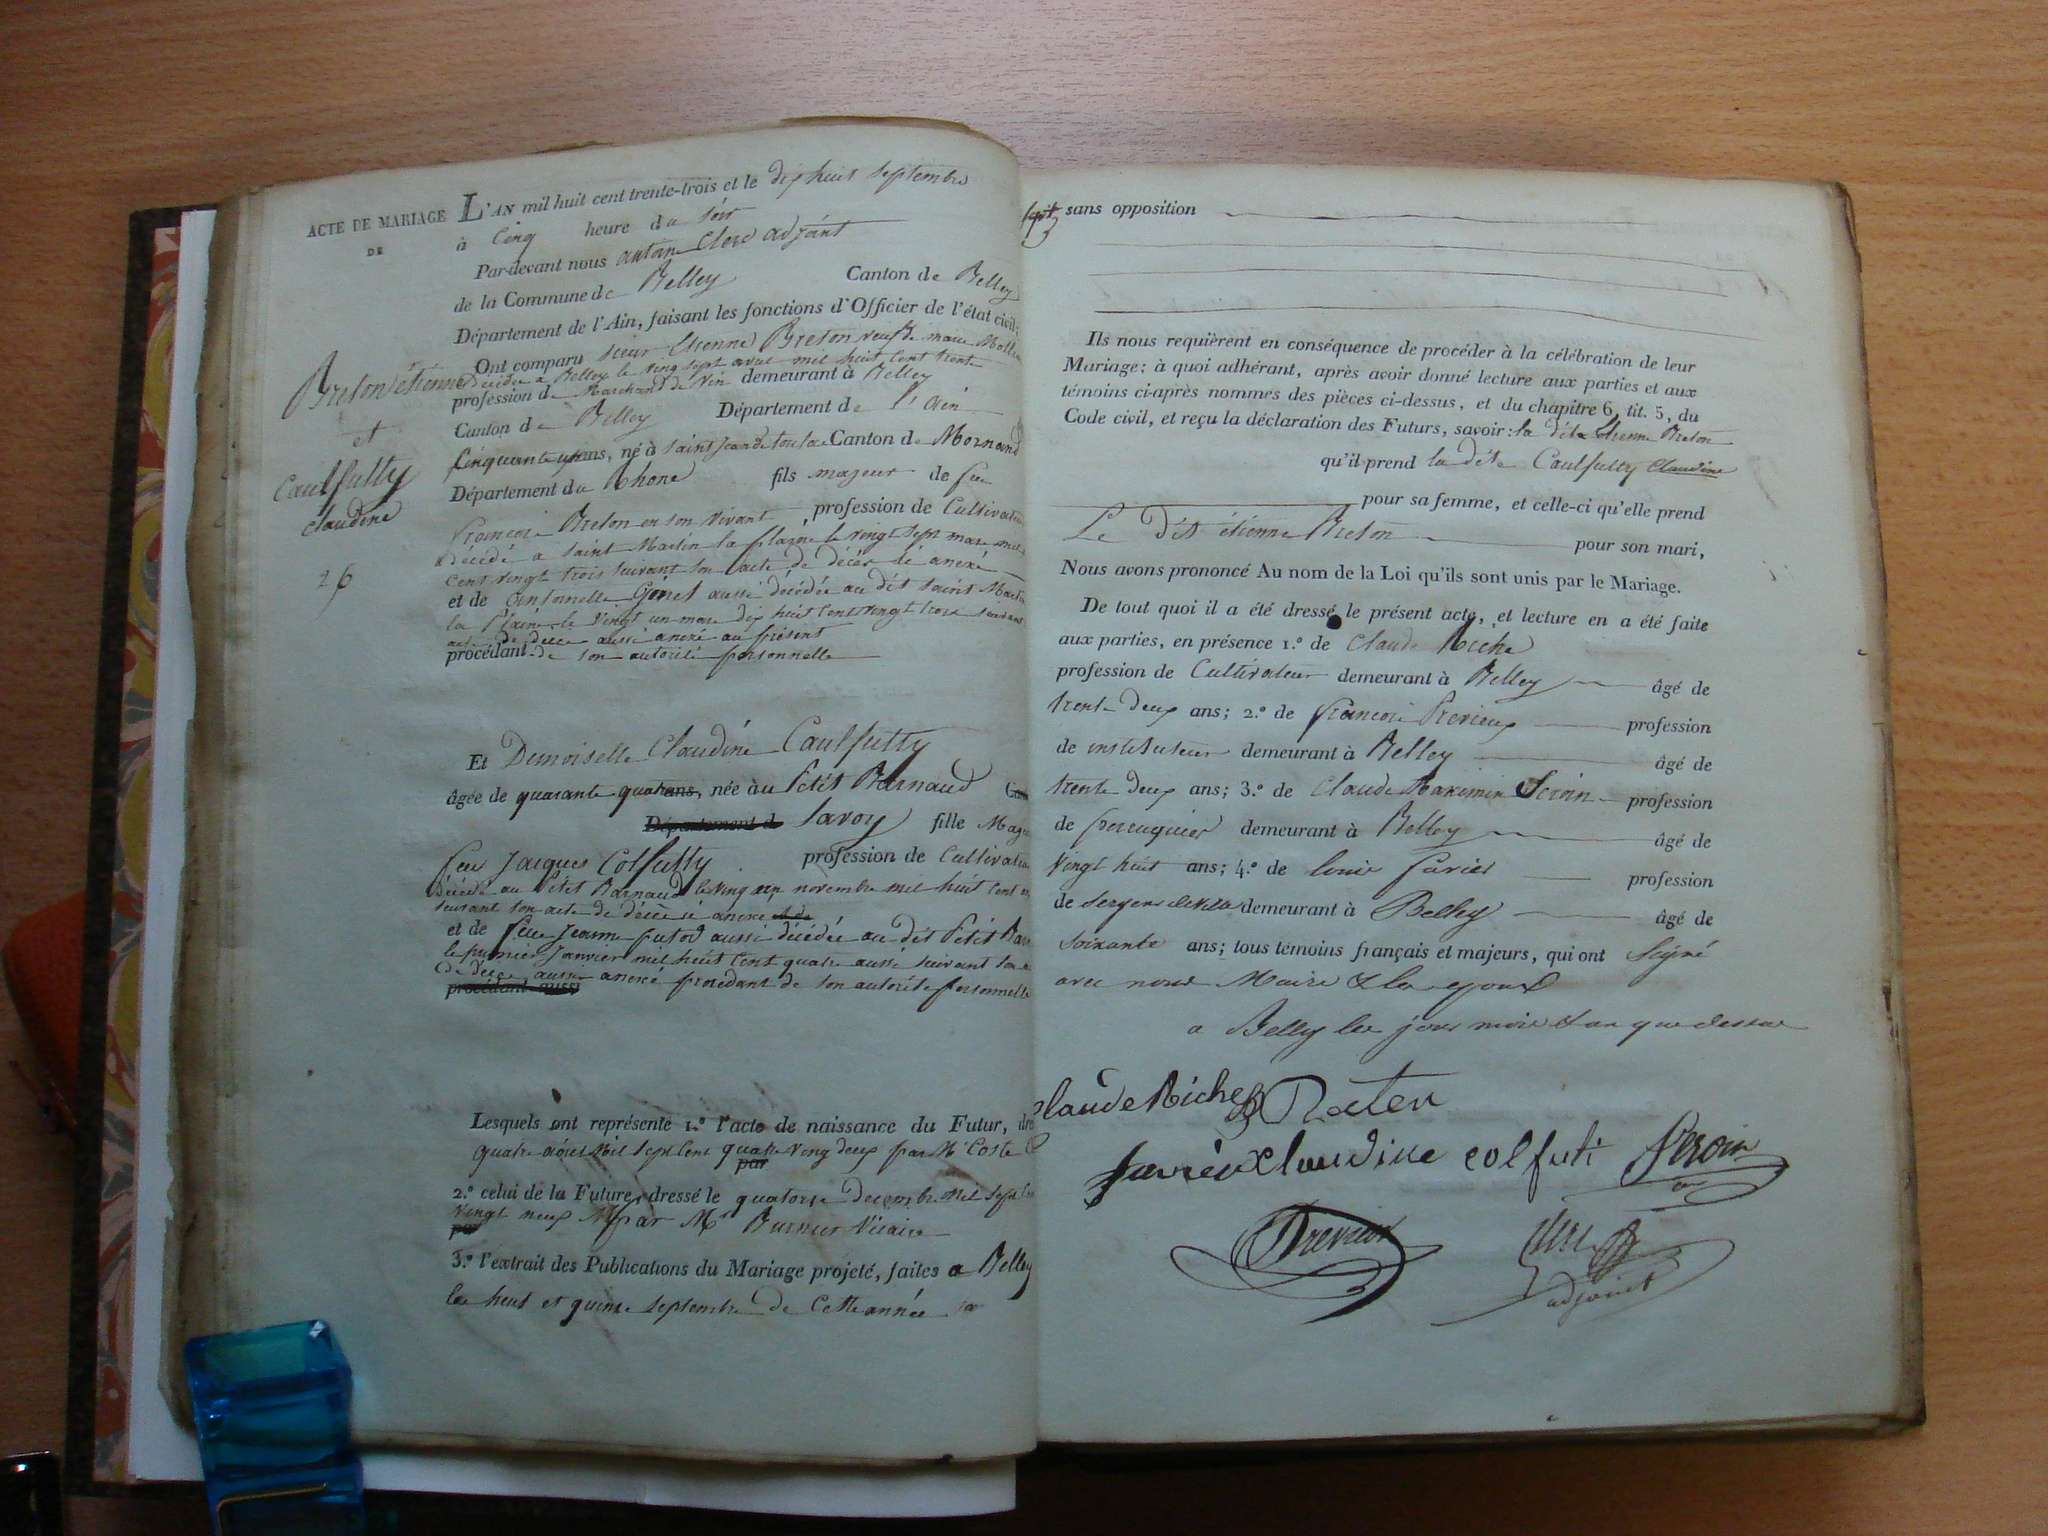 ACTE DE MARIAGE
DE
Breton étienne
et
Caulfutty
claudine
26
L'AN mil huit cent trente-trois et le dix huit septembre
à Cinq heure du soir
Par-devant nous antoine Clerc adjoint
de la Commune de Belley Canton de Belley
Département de l'Ain, faisant les fonctions d'Officier de l'état civil;
Ont comparu sieur Etienne Breton veuf de marie
décédée a Belley le vingt sept avril mil huit cent trente
profession de Marchand de Vin demeurant à Belley
Canton de Belley Département de l'ain
Cinquante un ans, né à saint jean de toulas Canton de Mornand
Département du Rhone fils majeur de feu
françois Breton en son vivant profession de Cultivateur
décédé a saint Martin la plaine le vingt sept mars mil
cent vingt trois suivant son acte de décès ci anexé
et de antoinette Gonet aussi décédée au dit saint Martin
la plaine le vingt un mars dix huit cent vingt trois suivant
acte de décès aussi anexé au présent
procédant de son autorité personnelle
Et Demoiselle Claudine Caulfutty
âgée de quarante quatre ans, née au Petit Barnand
Département d Savoy fille
feu Jacques Colfutty profession de Cultivateur
décédé au Petit Barnand le novembre mil huit cent
suivant son acte de décès ci anexé
et de feue Jeanne futod aussi décédée au dit Petit
le premier Janvier mil huit cent quatre aussi suivant son
de décès aussi anexé procédant de son autorité personnelle
procédant aussi
Lesquels ont représenté 1.º l'acte de naissance du Futur,
quatre aous Mil sept cent quatre ving deux par Mr Coste
par
2.º celui de la Future, dressé le quatorze decembre mil sept
vingt neuf par Mr Burnier Vicaire
par
3.º l'extrait des Publications du Mariage projeté, faites a Belley
les heuit et quinze septembre de Cette année
sans opposition
Ils nous requièrent en conséquence de procéder à la célébration de leur
Mariage; à quoi adhérant, après avoir donné lecture aux parties et aux
témoins ci-après nommés des pièces ci-dessus, et du chapitre 6, tit. 5, du
Code civil, et reçu la déclaration des Futurs, savoir: le dit Etienne Breton
qu'il prend la dite Caulfutty Claudine
pour sa femme, et celle-ci qu'elle prend
Le dit étienne Breton pour son mari,
Nous avons prononcé Au nom de la Loi qu'ils sont unis par le Mariage.
De tout quoi il a été dressé le présent acte, et lecture en a été faite
aux parties, en présence 1.º de Claude Riche
profession de Cultivateur demeurant à Belley âgé de
trente deux ans; 2.º de françois Previeux profession
de instituteur demeurant à Belley âgé de
trente deux ans; 3.º de Claude Maximin Peroin profession
de perruquier demeurant à Belley âgé de
Vingt huit ans; 4.º de louis favier profession
de sergent de ville demeurant à Belley âgé de
soixante ans; tous témoins français et majeurs, qui ont signé
avec nous Maire & la epouse
a Belley les jour mois & an que dessus
Claude Riche
claudine colfuti Peroin
Previeux
adjoint